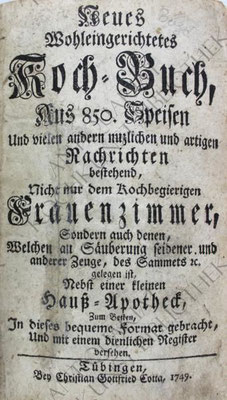 Neues
Wohleingerichtetes
Koch-Buch,
Aus 850. Speisen
Und vielen andern nuzlichen und artigen
Nachrichten
bestehend,
Nicht nur dem Kochbegierigen
Frauenzimmer,
Sondern auch denen,
Welchen an Säuberung seidener und
anderer Zeuge, des Sammets ꝛc.
gelegen ist,
Nebst einer kleinen
Hauß-Apotheck,
Zum Besten,
In dieses bequeme Format gebracht,
Und mit einem dienlichen Register
versehen.
Tübingen,
Bey Christian Gottfried Cotta, 1749.